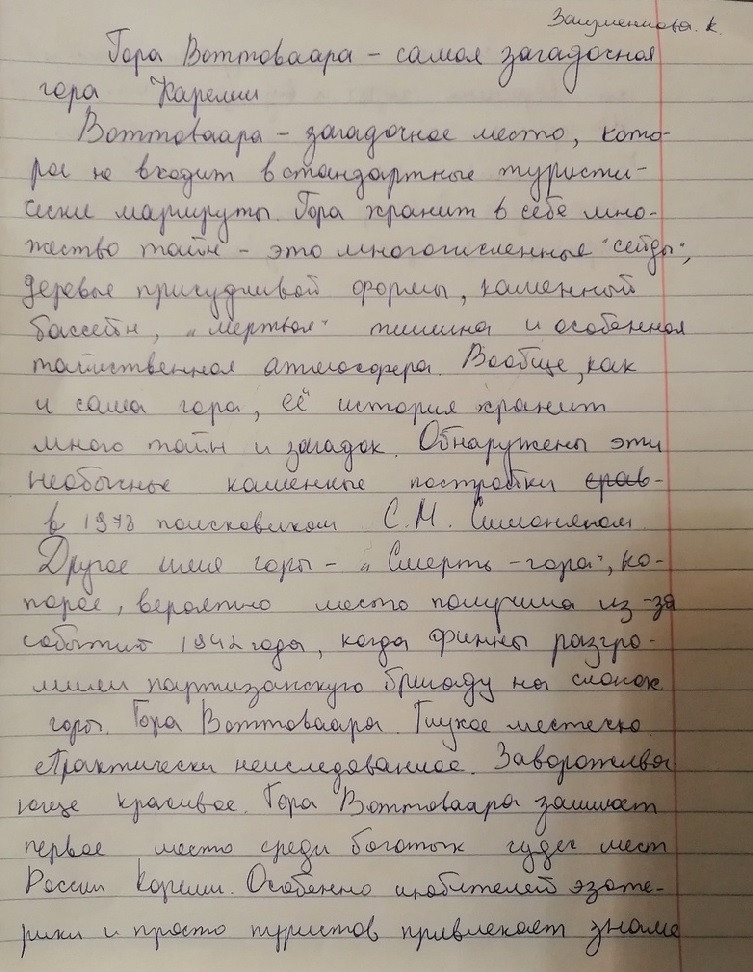 К.
Гора Воттоваара - самая загадочная
гора Карелии
Воттоваара - загадочное место, кото-
рое не входит в стандартные туристи-
ческие маршруты. Гора хранит в себе мно-
жество тайн - это многочисленные "сейды",
деревье причудливой формы, каменный
бассейн, "мертвая" тишина и особенная
таинственная атмосфера. Вообще, как
и сама гора, её история хранит
много тайн и загадок. Обнаружены эти
необычные каменные постройки срав-
в 1978 поисковиком С.М. Симоняном
Другое имя горы - "Смерть-гора", ко-
торое, вероятно место получила из-за
событий 1942 года, когда финны разгро-
мили партизанскую бригаду на склонах
горы. Гора Воттоваара. Глухое местечко.
Практически неисследованное. Заворажива
юще красивое. Гора Воттоваара занимает
первое место среди богатых чудес мест
России Карелии. Особенно любителей эзоте-
рики и просто туристов привлекает знаме